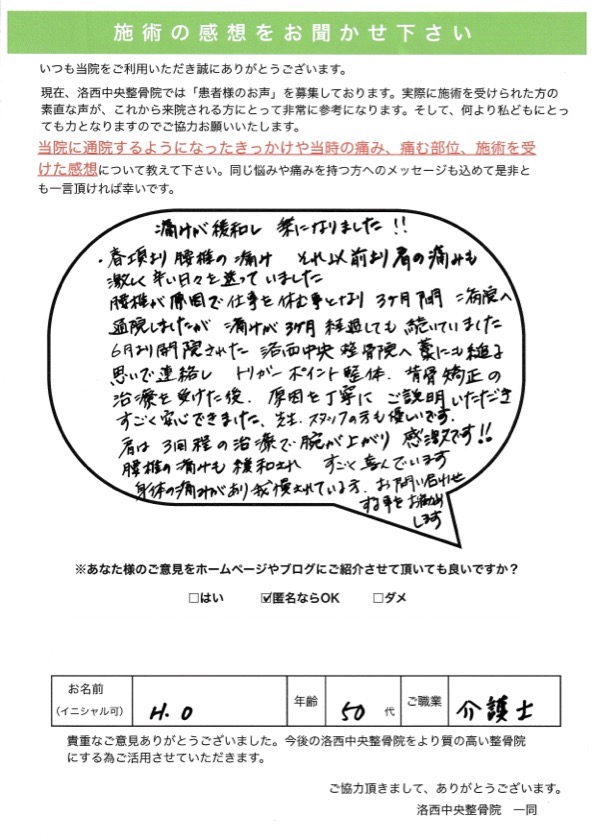 施術の感想をお聞かせ下さい
いつも当院をご利用いただき誠にありがとうございます。
現在、洛西中央整骨院では「患者様のお声」を募集しております。実際に施術を受けられた方の
素直な声が、これから来院される方にとって非常に参考になります。そして、何より私どもにとっ
ても力となりますのでご協力お願いいたします。
当院に通院するようになったきっかけや当時の痛み、痛む部位、施術を受
けた感想について教えて下さい。同じ悩みや痛みを持つ方へのメッセージも込めて是非と
も一言頂ければ幸いです。
痛みが緩和し 楽になりました!!
・春頃より 腰椎の痛み それ以前より肩の痛みも
激しく辛い日々を送っていました
腰椎が原因で仕事を休む事となり 3ヶ月間 病院へ
通院しましたが 痛みが3ヶ月経過しても 続いていました
6月より開院された 洛西中央整骨院へ藁にも縋る
思いで連絡し トリガーポイント整体、背骨矯正の
治療を受けた後、原因を丁寧に ご説明いただき
すごく安心できました、先生、スタッフの方も優しいです.
肩は 3回程の治療で腕が上がり 感激です!!
腰椎の痛みも 緩和され すごく喜んでいます
身体の痛みがあり我慢されている方、お問い合わせ
する事をお勧め
します
※あなた様のご意見をホームページやブログにご紹介させて頂いても良いですか？
□はい ☑匿名ならOK □ダメ
お名前
(イニシャル可) H.O 年齢 50 代 ご職業 介護士
貴重なご意見ありがとうございました。今後の洛西中央整骨院をより質の高い整骨院
にする為ご活用させていただきます。
ご協力頂きまして、ありがとうございます。
洛西中央整骨院 一同